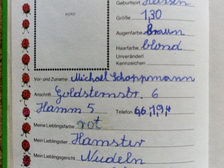 Geburtsort: Hansen
Größe: 1,30
Augenfarbe: Braun
Haarfarbe: blond
Unveränderl.
Kennzeichen:
FOTO
Vor- und Zuname: Michael Schoppmann
Anschrift: Goldsternstr. 6
Hamm 5 Telefon
Meine Lieblingsfarbe: rot
Mein Lieblingstier: Hamster
Mein Lieblingsgericht: Nudeln